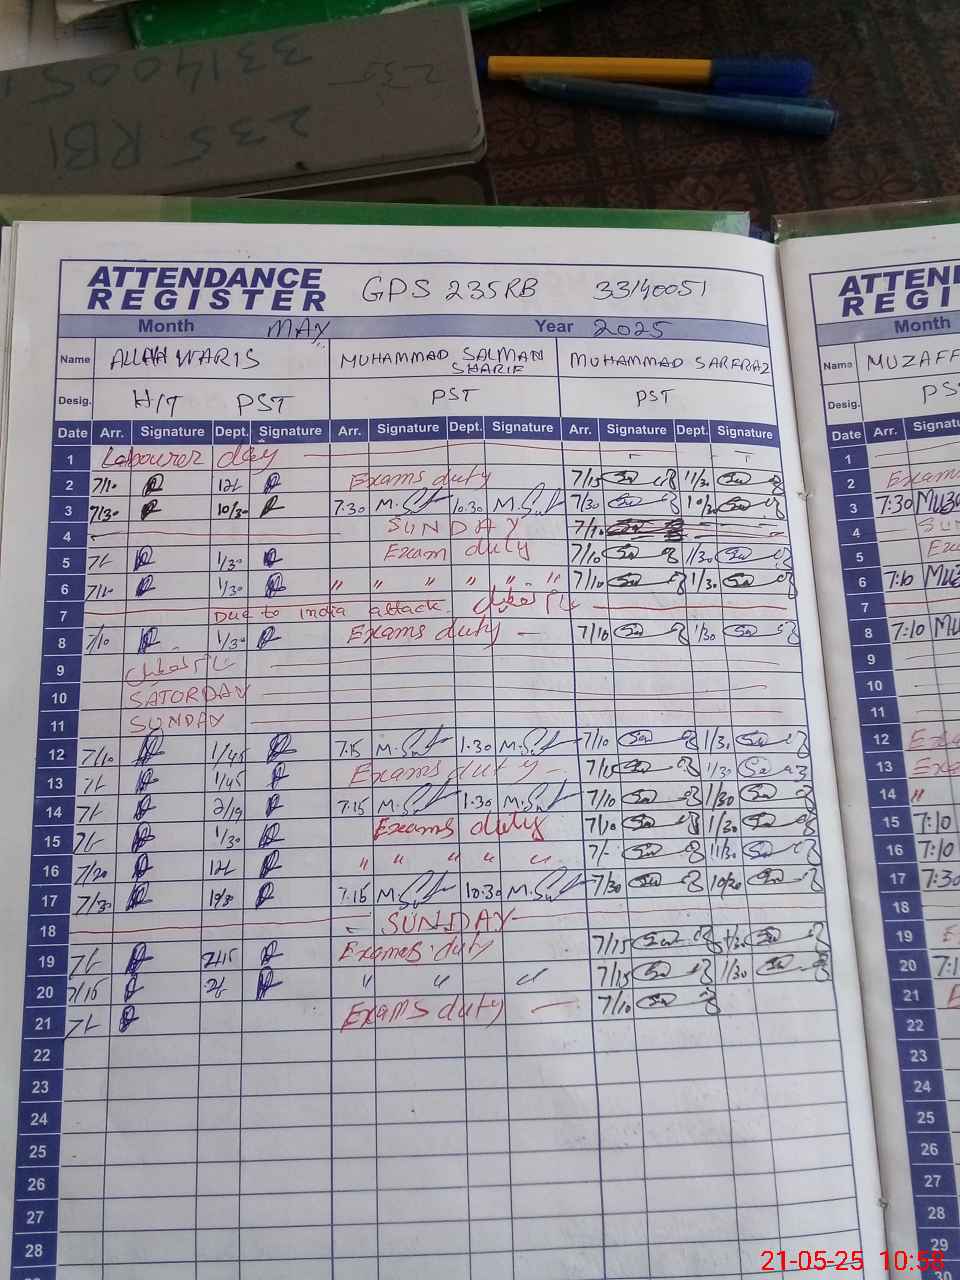 3314005
235
235 RBI
ATTENDANCE REGISTER GPS 235RB 33140051
Month MAY Year 2025
Name ALLAH WARIS MUHAMMAD SALMAN SHARIF MUHAMMAD SARFRAZ
Desig. H/T PST PST PST
Date Arr. Signature Dept. Signature Arr. Signature Dept. Signature Arr. Signature Dept. Signature
1 Labourer day
2 7/10 12L Exams duty 7/15 11/30
3 7/30 10/30 7.30 10.30 7/30 10/30
4 SUNDAY 7/10
5 7L 1/30 Exam duty 7/10 1/30
6 7/10 1/30 " " " " " " 7/10 1/30
7 Due to india attack.
8 7/10 1/30 Exams duty 7/10 1/30
9
10 SATORDAY
11 SUNDAY
12 7/10 1/45 7.15 1.30 7/10 1/30
13 7L 1/45 Exams duty 7/10 1/30
14 7L 2/19 7.15 1.30 7/10 1/30
15 7L 1/30 Exams duty 7/10 1/30
16 7/20 12L " " " " " 7/- 11/30
17 7/30 10/30 7.15 10.30 7/30 10/20
18 SUNDAY
19 7L 245 Exames duty 7/15 1/30
20 7/15 2L " " " 7/15 1/30
21 7L Exams duty 7/10
22
23
24
25
26
27
28
ATTEN
REGI
Month
Name MUZAFF
Desig. PS
Date Arr. Signatu
1
2 Exam
3 7:30 Muz
4 SU
5 Exa
6 7:10 Muz
7
8 7:10 Mu
9
10
11
12 Exa
13 Exa
14 "
15 7:10
16 7:10
17 7:30
18
19 E
20 7:1
21 E
22
23
24
25
26
27
28
29
30
21-05-25 10:58